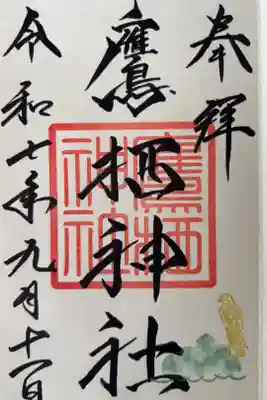 奉拝
鷹栖神社
鷹栖神社
令和七年九月十一日